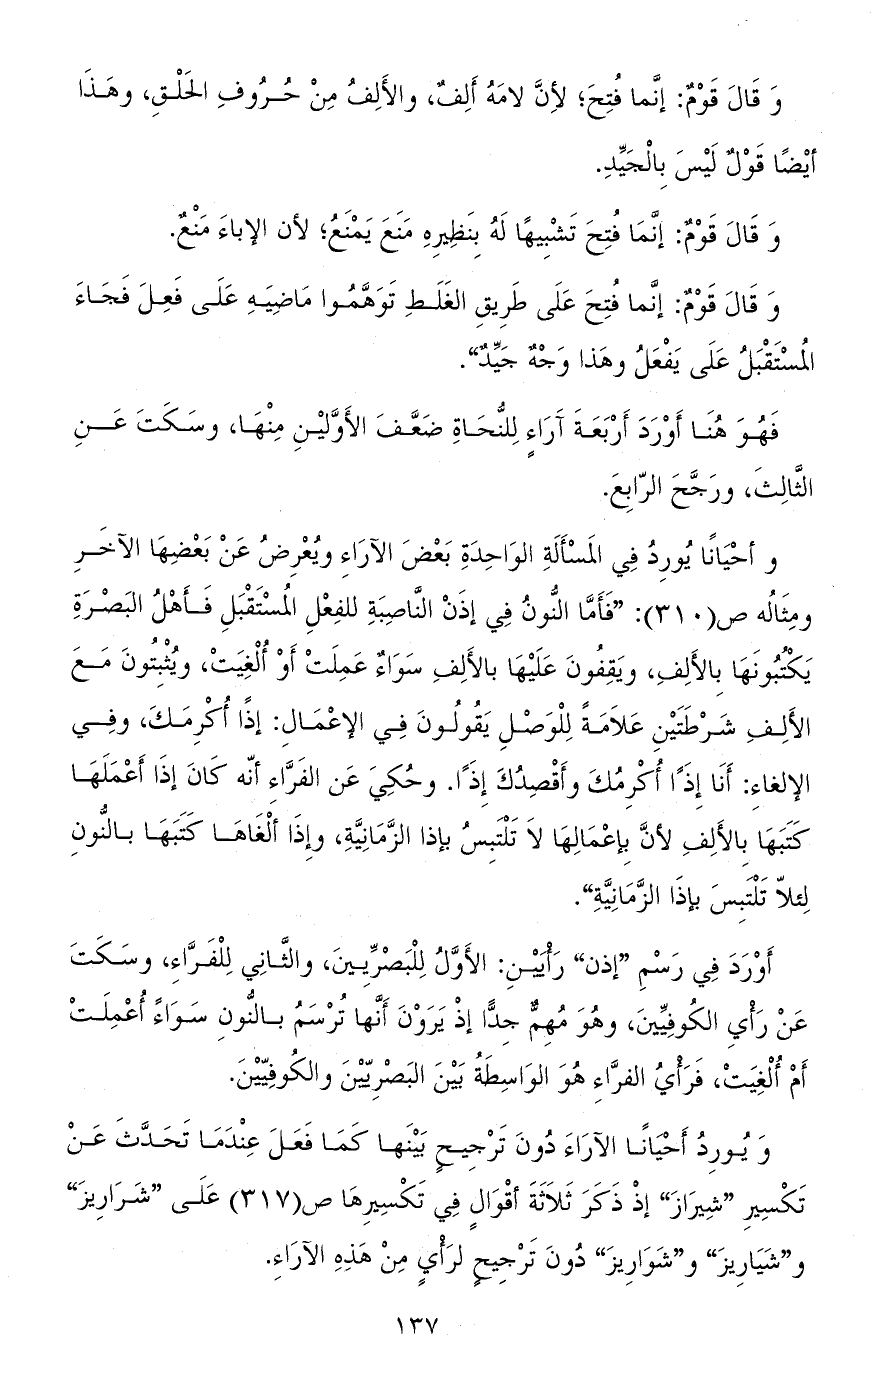 وَ قَالَ قَوْمٌ: إنَّما فُتِحَ؛ لأِنَّ لامَهُ أَلِفٌ، والأَلِفُ مِنْ حُـرُوفِ الحَلْـقِ، وهَـذَا
أيْضًا قَوْلٌ لَيْسَ بِالْجَيِّدِ.
وَ قَالَ قَوْمٌ: إنَّمَا فُتِحَ تَشْبِيهًا لَهُ بِنَظِيرِهِ مَنَعَ يَمْنَعُ؛ لأن الإباءَ مَنْعٌ.
وَ قَالَ قَوْمٌ: إنَّما فُتِحَ عَلَى طَرِيقِ الغَلَـطِ تَوَهَّمُـوا مَاضِيَـهِ عَلَـى فَعِـلَ فَجَـاءَ
المُسْتَقْبَلُ عَلَى يَفْعَلُ وهَذا وَجْهٌ جَيِّدٌ“.
فَهُـوَ هُنَـا أَوْرَدَ أَرْبَعَـةَ آرَاءٍ لِلنُّحَـاةِ ضَعَّـفَ الأَوَّلَيْـنِ مِنْهَـا، وسَـكَتَ عَـنِ
الثَّالِثَ، ورَجَّحَ الرّابِعَ.
و أحْيَانًا يُورِدُ فِي المَسْأَلَةِ الوَاحِدَةِ بَعْضَ الآرَاءِ ويُعْرِضُ عَنْ بَعْضِهَا الآخَـرِ
ومِثَالُه ص(٣١٠): ”فَأَمَّا النُّونُ فِي إذَنْ النَّاصِبَةِ للفِعْلِ المُسْتَقْبَلِ فَـأَهْلُ البَصْـرَةِ
يَكْتُبُونَهَا بِالأَلِفِ، ويَقِفُونَ عَلَيْهَا بالأَلِفِ سَوَاءٌ عَمِلَتْ أوْ أُلْغِيَتْ، ويُثْبِتُونَ مَـعَ
الأَلِـفِ شَـرْطَتَيْنِ عَلاَمَةً لِلْوَصْـلِ يَقُولُـونَ فِـي الإعْمَـالِ: إذًا أُكْرِمَـكَ، وفِـي
الإلغاءِ: أَنَا إذًا أُكْرِمُكَ وأَقْصِدُكَ إذًا. وحُكِيَ عَن الفَرَّاءِ أنّه كَانَ إذَا أَعْمَلَهَـا
كَتَبَهَا بالأَلِفِ لأنَّ بإعْمَالِهَا لاَ تَلْتَبِسُ بإذا الزَّمَانِيَّةِ، وإذَا ألْغَاهَـا كَتَبَهَـا بـالنُّونِ
لِئلاّ تَلْتَبِسَ بإذَا الزَّمَانِيَّةِ“.
أَوْرَدَ فِي رَسْمِ ”إذن“ رَأْيَيْـنِ: الأَوَّلُ لِلْبَصْرِّيِـينَ، والثَّـانِي لِلْفَـرَّاءِ، وسَـكَتَ
عَنْ رَأْيِ الكُوفِيِّينَ، وهُوَ مُهِمٌّ جِدًّا إذْ يَرَوْنَ أَنَّها تُرْسَمُ بـالنُّونِ سَـوَاءً أُعْمِلَـتْ
أمْ أُلْغِيَتْ، فَرَأْيُ الفرَّاءِ هُوَ الوَاسِطَةُ بَيْنَ البَصْرِيِّيْنَ والكُوفِيّيْنَ.
وَ يُـورِدُ أَحْيَانًـا الآرَاءَ دُونَ تَرْجِيـحٍ بَيْنَهـا كَمَـا فَعَـلَ عِنْدَمَـا تَحَـدَّثَ عَـنْ
تَكْسِيرِ ”شِيرَازَ“ إذْ ذَكَرَ ثَلاَثَةَ أقْوَالٍ فِي تَكْسِيرِهَا ص(٣١٧) عَلَـى ”شَـرَارِيزَ“
و”شَيَارِيزَ“ و”شَوَارِيزَ“ دُونَ تَرْجِيحٍ لرَأْيٍ مِنْ هَذِهِ الآرَاءِ.
١٣٧